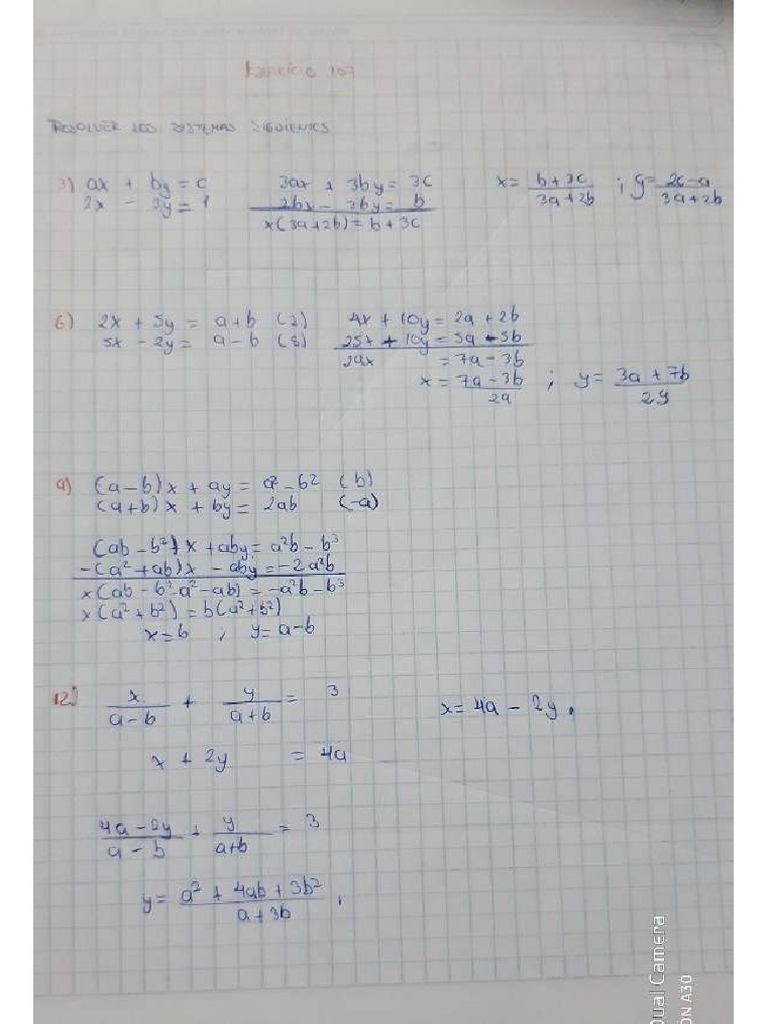 Ejercicio 107
RESOLVER LOS SISTEMAS SIGUIENTES
3) ax + by = c
2x - 2y = 1
3ax + 3by = 3c
2bx - 3by = b
x(3a+2b) = b + 3c
x = (b + 3c)/(3a + 2b) ; y = (2c - a)/(3a + 2b)
6) 2x + 5y = a + b (2)
5x - 2y = a - b (5)
4x + 10y = 2a + 2b
25x + 10y = 5a - 5b
29x = 7a - 3b
x = (7a - 3b)/29 ; y = (3a + 7b)/29
9) (a-b)x + ay = a² - b² (b)
(a+b)x + by = 2ab (-a)
(ab - b²)x + aby = a²b - b³
-(a² + ab)x - aby = -2a²b
x(ab - b² - a² - ab) = -a²b - b³
x(a² + b²) = b(a² + b²)
x = b ; y = a - b
12) x/(a - b) + y/(a + b) = 3
x + 2y = 4a
x = 4a - 2y
(4a - 2y)/(a - b) + y/(a+b) = 3
y = (a² + 4ab + 3b²)/(a + 3b)
ual Camera
ÓN A30